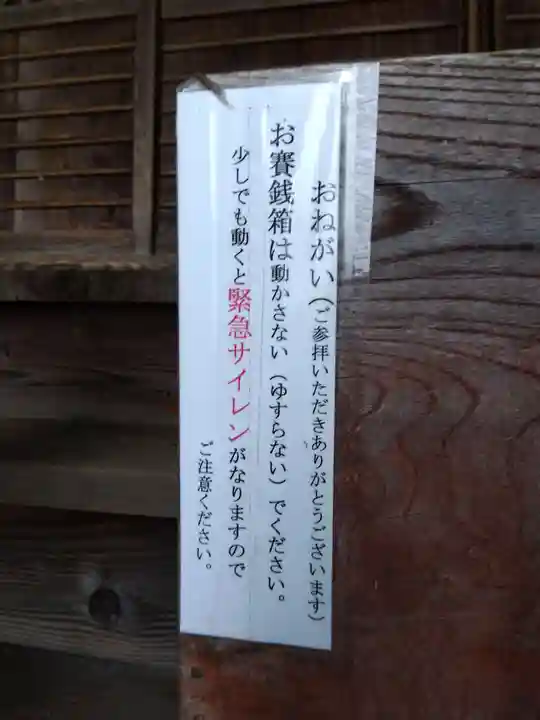 おねがい(ご参拝いただきありがとうございます)
お賽銭箱は動かさない(ゆすらない)でください。
少しでも動くと緊急サイレンがなりますので
ご注意ください。